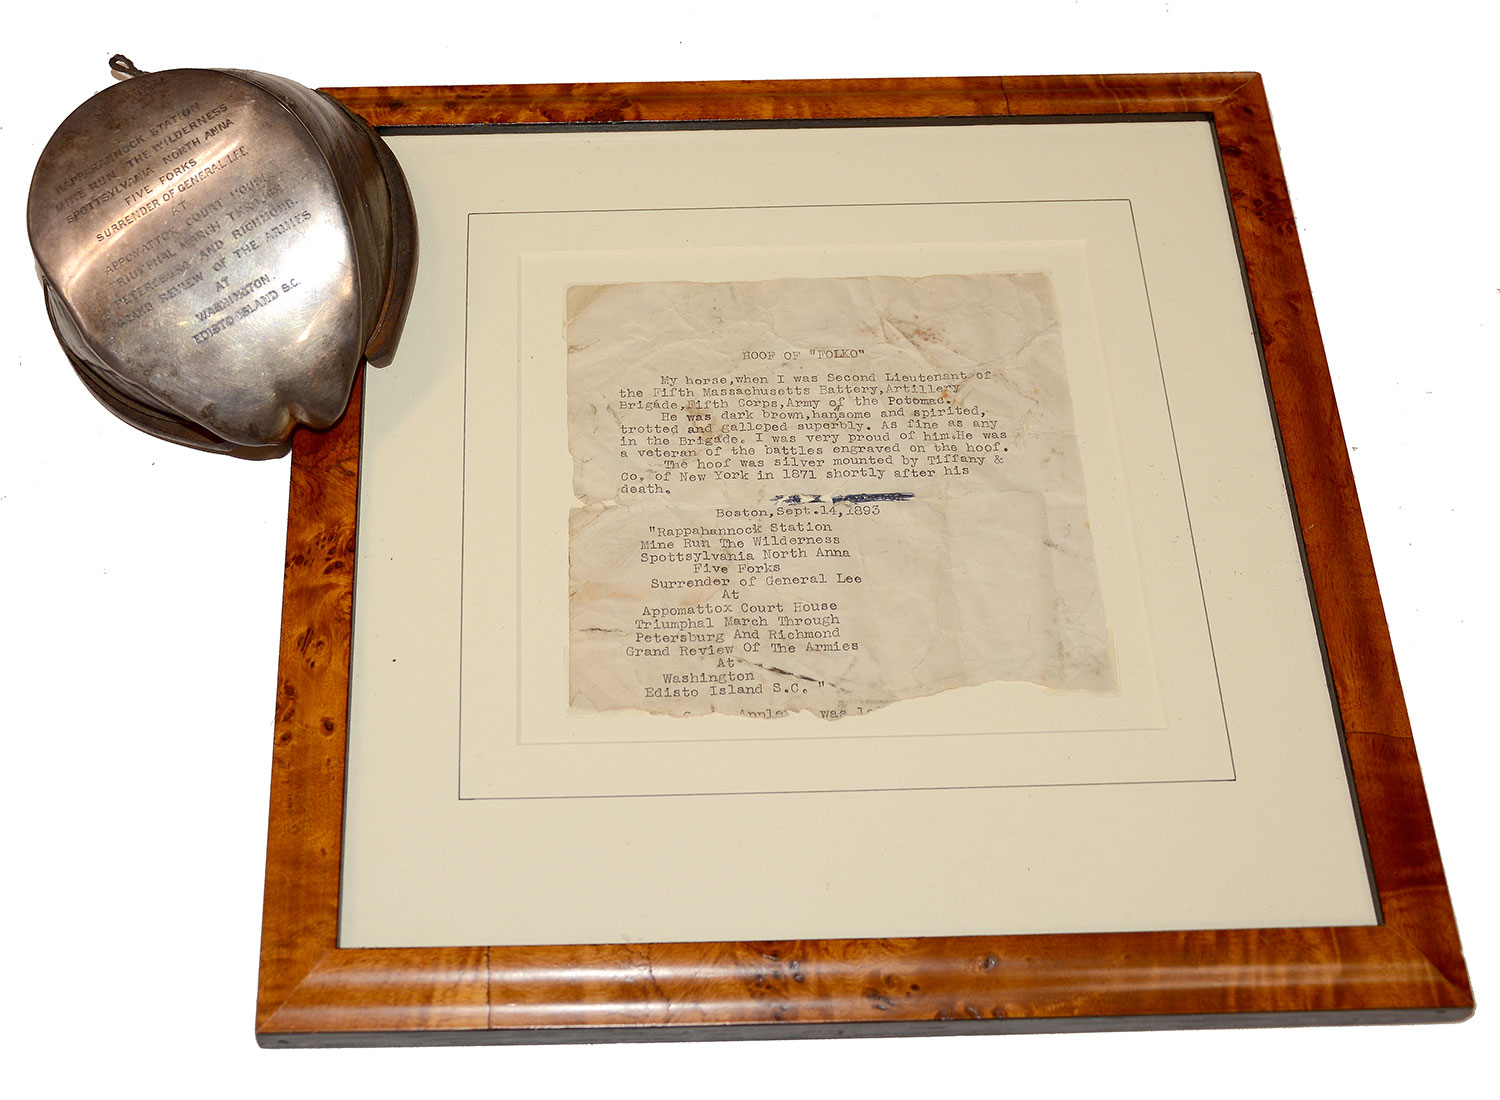 RAPPAHANNOCK STATION
MINE RUN THE WILDERNESS
SPOTTSYLVANIA NORTH ANNA
FIVE FORKS
SURRENDER OF GENERAL LEE
AT
APPOMATTOX COURT HOUSE
TRIUMPHAL MARCH THROUGH
PETERSBURG AND RICHMOND.
GRAND REVIEW OF THE ARMIES
AT
WASHINGTON.
EDISTO ISLAND S.C.
HOOF OF "FOLKO"
My horse,when I was Second Lieutenant of
the Fifth Massachusetts Battery,Artillery
Brigade,Fifth Corps,Army of the Potomac.
He was dark brown,hansome and spirited,
trotted and galloped superbly. As fine as any
in the Brigade. I was very proud of him.He was
a veteran of the battles engraved on the hoof.
The hoof was silver mounted by Tiffany &
Co. of New York in 1871 shortly after his
death.
Boston,Sept.14,1893
"Rappahannock Station
Mine Run The Wilderness
Spottsylvania North Anna
Five Forks
Surrender of General Lee
At
Appomattox Court House
Triumphal March Through
Petersburg And Richmond
Grand Review Of The Armies
At
Washington
Edisto Island S.C. "
was